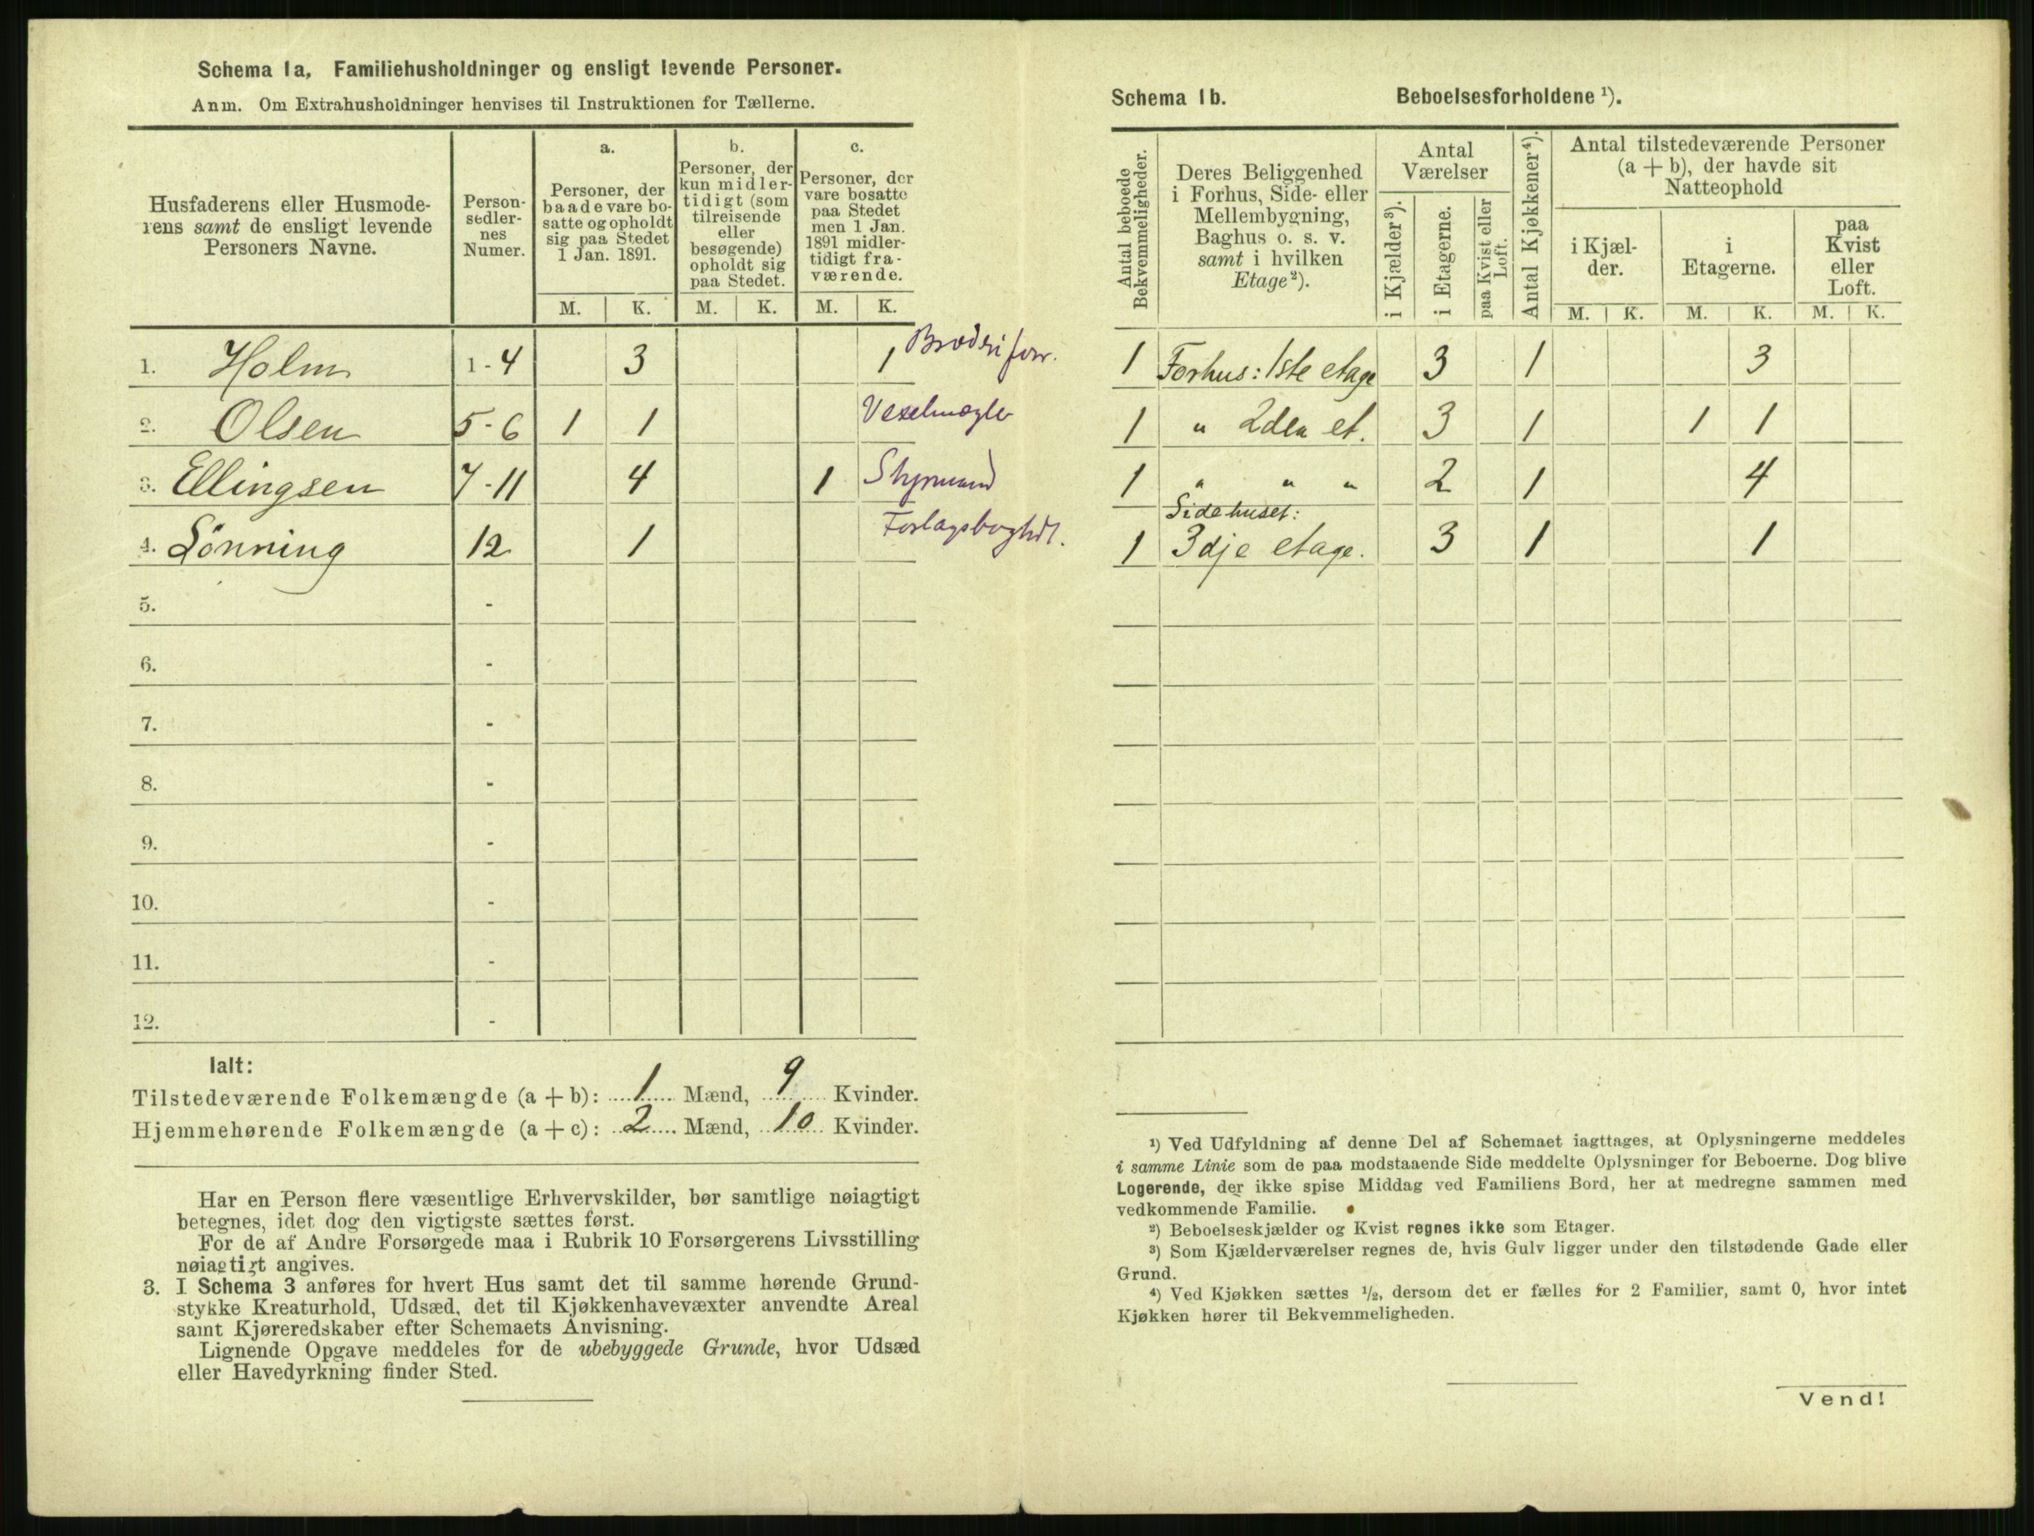 Schema 1a, Familiehusholdninger og ensligt levende Personer.
Anm. Om Extrahusholdninger henvises til Instruktionen for Tællerne.
Husfaderens eller Husmode-
rens samt de ensligt levende
Personers Navne.
Person-
sedler-
nes
Numer.
a.
Personer, der
baade vare bo-
satte og opholdt
sig paa Stedet
1 Jan. 1891.
b.
Personer, der
kun midler-
tidigt (som
tilreisende
eller
besøgende)
opholdt sig
paa Stedet.
c.
Personer, der
vare bosatte
paa Stedet
men 1 Jan.
1891 midler-
tidigt fra-
værende.
M. K. M. K. M. K.
1. Holm 1-4 3 1
2. Olsen 5-6 1 1 Vexelmægler
3. Ellingsen 7-11 4 1 Styrmand
4. Lönning 12 1 Forlagsboghdl.
5. -
6. -
7. -
8. -
9. -
10. -
11. -
12. -
Ialt:
Tilstedeværende Folkemængde (a + b): 1 Mænd, 9 Kvinder.
Hjemmehørende Folkemængde (a + c): 2 Mænd, 10 Kvinder.
Har en Person flere væsentlige Erhvervskilder, bør samtlige nøiagtigt
betegnes, idet dog den vigtigste sættes først.
For de af Andre Forsørgede maa i Rubrik 10 Forsørgerens Livsstilling
nøiagtigt angives.
3. I Schema 3 anføres for hvert Hus samt det til samme hørende Grund-
stykke Kreaturhold, Udsæd, det til Kjøkkenhavevæxter anvendte Areal
samt Kjøreredskaber efter Schemaets Anvisning.
Lignende Opgave meddeles for de ubebyggede Grunde, hvor Udsæd
eller Havedyrkning finder Sted.
Schema 1b. Beboelsesforholdene ¹).
Antal beboede
Bekvemmeligheder.
Deres Beliggenhed
i Forhus, Side- eller
Mellembygning,
Baghus o. s. v.
samt i hvilken
Etage²).
Antal
Værelser
i Kjælder³).
i Etagerne.
paa Kvist eller
Loft.
Antal Kjøkkener⁴).
Antal tilstedeværende Personer
(a + b), der havde sit
Natteophold
i Kjæl-
der.
i
Etagerne.
paa
Kvist
eller
Loft.
M. K. M. K. M. K.
1 Forhus: 1ste etage 3 1 3
1 " 2den et. 3 1 1 1
1 " " " 2 1 4
Sidehuset:
1 3dje etage. 3 1 1
¹) Ved Udfyldning af denne Del af Schemaet iagttages, at Oplysningerne meddeles
i samme Linie som de paa modstaaende Side meddelte Oplysninger for Beboerne. Dog blive
Logerende, der ikke spise Middag ved Familiens Bord, her at medregne sammen med
vedkommende Familie.
²) Beboelseskjælder og Kvist regnes ikke som Etager.
³) Som Kjælderværelser regnes de, hvis Gulv ligger under den tilstødende Gade eller
Grund.
⁴) Ved Kjøkken sættes ½, dersom det er fælles for 2 Familier, samt 0, hvor intet
Kjøkken hører til Bekvemmeligheden.
Vend!